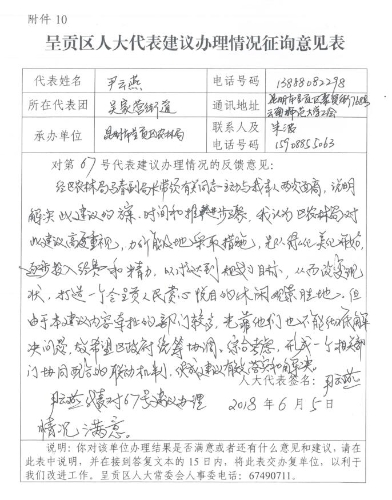 附件 10
呈贡区人大代表建议办理情况征询意见表
代表姓名 尹云燕 电话号码 13888082298
所在代表团 吴家营街道 通讯地址 昆明市呈贡区聚贤街768号
云南师范大学工会
承办单位 昆明市呈贡区农林局 联系人及电话 朱
15908855063
对第 67 号代表建议办理情况的反馈意见：
经区农林局马春副局长带领有关同志主动与我本人两次面商，说明
解决此建议的方案、时间和推进步骤。我认为区农林局对
此建议高度重视，力所能及地采取措施，先以绿化美化
逐步投入经费和精力，以求达到规划目标，从而改变现
状，打造一个令呈贡人民赏心悦目的休闲观景胜地。但
由于本建议内容牵扯的部门较多，光靠他们也不能彻底解
决问题，故希望区政府统筹协调、综合考虑，形成一个相关部
门协同配合的联动机制，使此建议有效落实和解决。
人大代表签名：尹云燕
尹云燕代表对67号建议办理 2018 年 6 月 5 日
情况满意。
说明：你对该单位办理结果是否满意或者还有什么意见和建议，请在
此表中说明，并在接到答复文本的 15 日内，将此表交办复单位，以利于
我们改进工作。呈贡区人大常委会人事委电话：67490711。